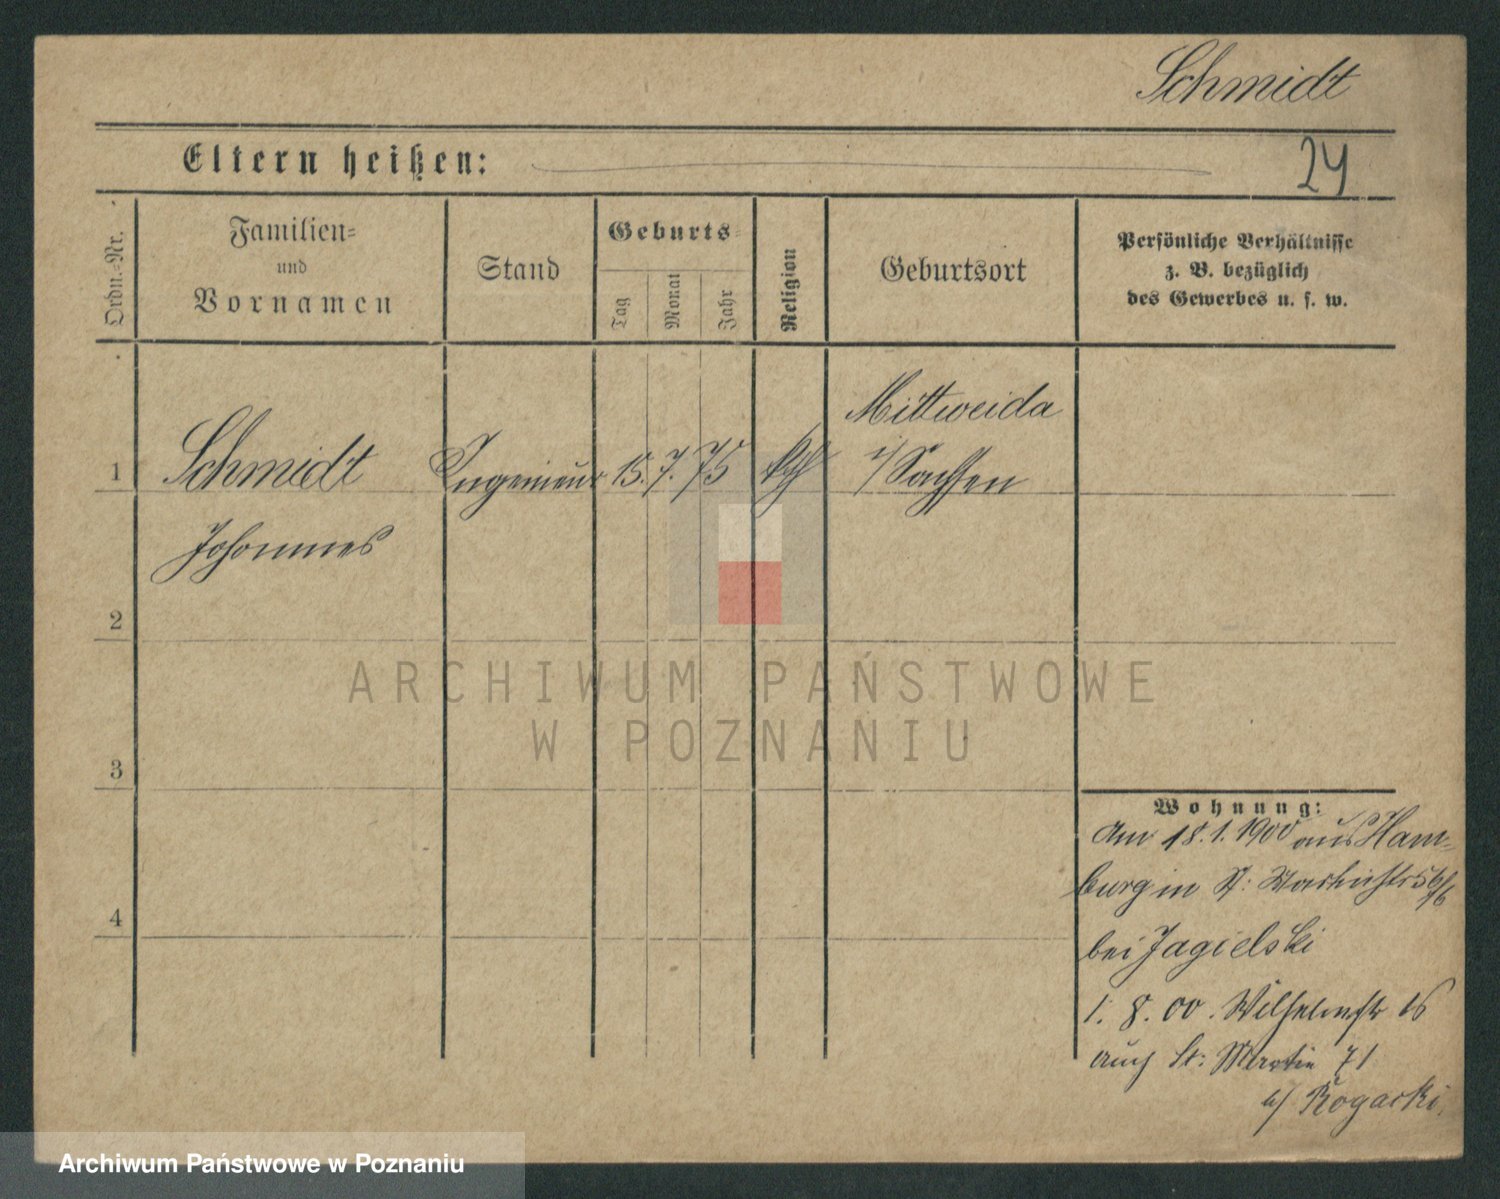 Schmidt
Eltern heißen:
24
Ordn.-Nr.
Familien-
und
Vornamen
Stand
Geburts-
Tag
Monat
Jahr
Religion
Geburtsort
Persönliche Verhältnisse
z. B. bezüglich
des Gewerbes u. s. w.
1
Schmidt
Ingenieur
15. 7. 75
kth
Mittweida
i/Sachsen
Johannes
2
ARCHIWUM PAŃSTWOWE
W POZNANIU
3
Wohnung:
Am 18.1.1900 aus Ham-
burg in St:
4
bei Jagielski
1. 8. 00. Wilhelmstr 16
auch St: Martin 71
b/ Rogacki
Archiwum Państwowe w Poznaniu